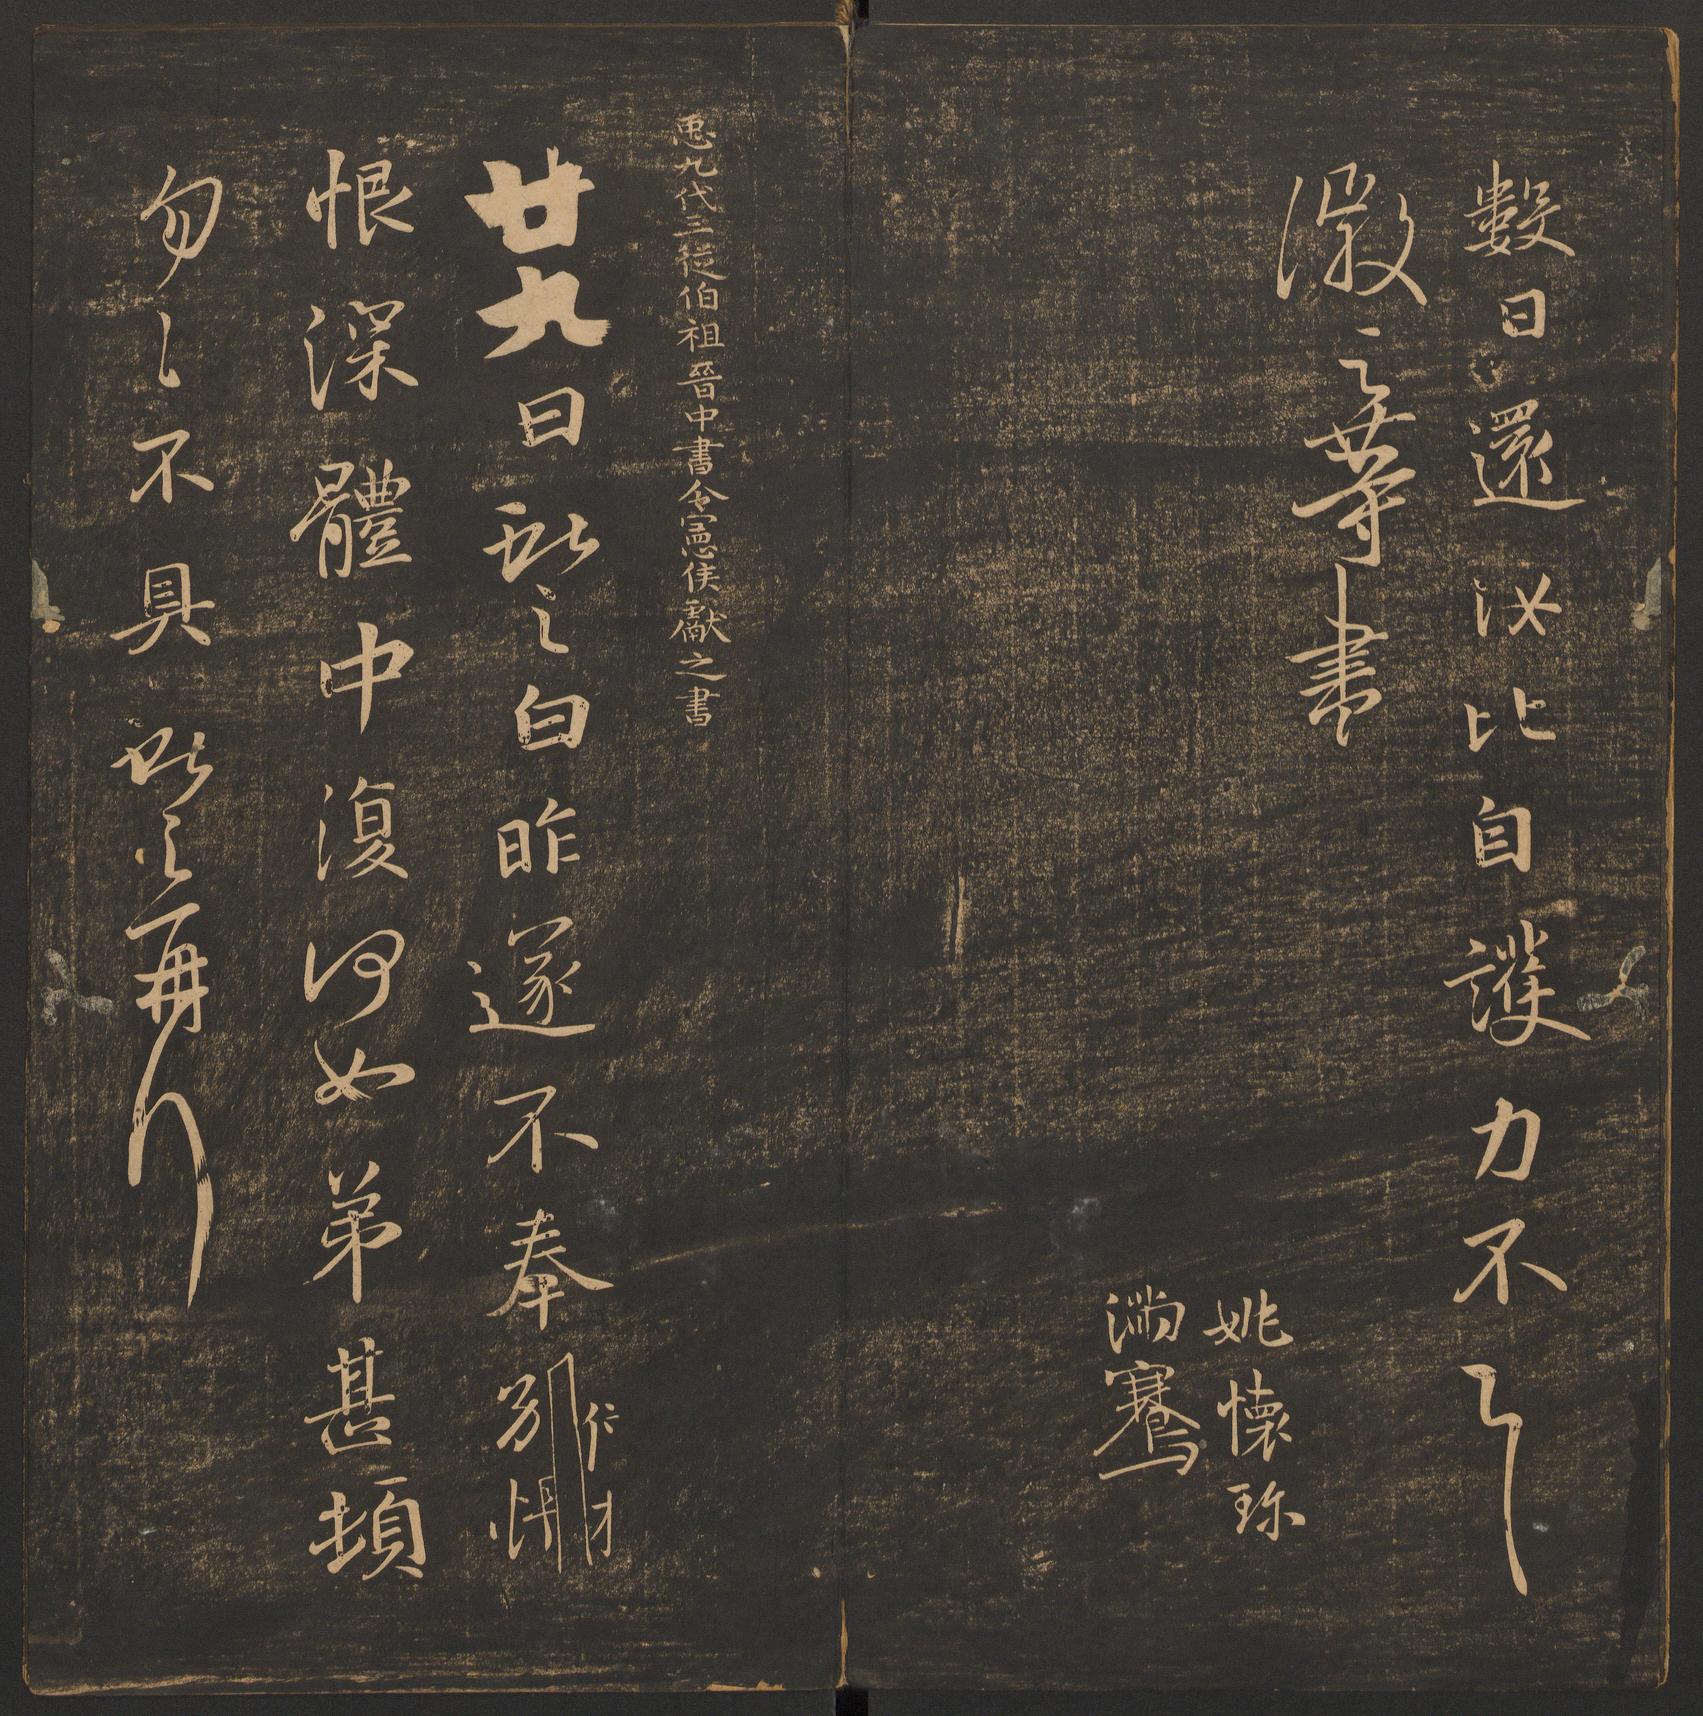 數日還汝比自護力不一一
徽之等書
姚懷珎
滿騫
𢘑九代三從伯祖晉中書令憲侯獻之書
廿九日獻之白昨遂不奉別悵
恨深體中復何如弟甚頓
勿勿不具獻之再拜